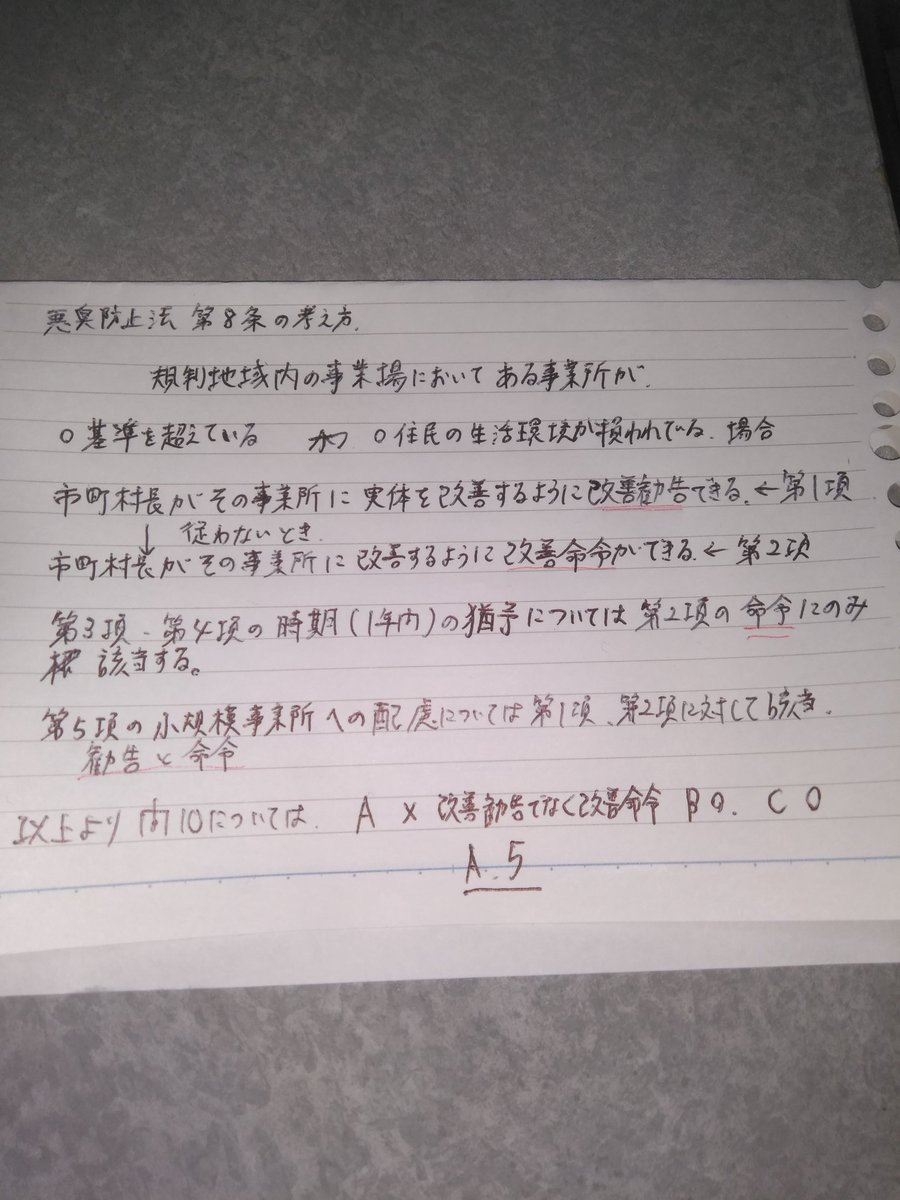 悪臭防止法 第8条の考え方.
規制地域内の事業場において ある事業所が.
○基準を超えている かつ ○住民の生活環境が損われている. 場合
市町村長がその事業所に 実体を改善するように改善勧告できる. ←第1項
↓ 従わないとき.
市町村長がその事業所に 改善するように 改善命令ができる. ← 第2項
第3項、第4項の 時期(1年内)の猶予については 第2項の 命令にのみ
該当する。
第5項の 小規模事業所への配慮については 第1項、第2項に対して該当.
勧告と命令
以上より 問10については. A × 改善勧告でなく改善命令 B ○. C ○
A. 5